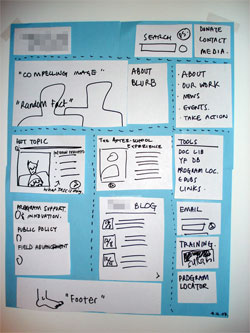 SEARCH
DONATE
CONTACT
MEDIA.
"COMPELLING IMAGE"
"Random Fact"
ABOUT
BLURB
· ABOUT
· OUR WORK
· NEWS
· EVENTS.
· TAKE ACTION
HOT TOPIC
THE AFTER-SCHOOL
EXPERIENCE
TOOLS
DOC LIB
YP DB
PROGRAM LOC.
LINKS.
PROGRAM SUPPORT
& INNOVATION.
PUBLIC POLICY
FIELD ADVANCEMENT
BLOG
EMAIL
TRAINING
PROGRAM
LOCATOR
"Footer"